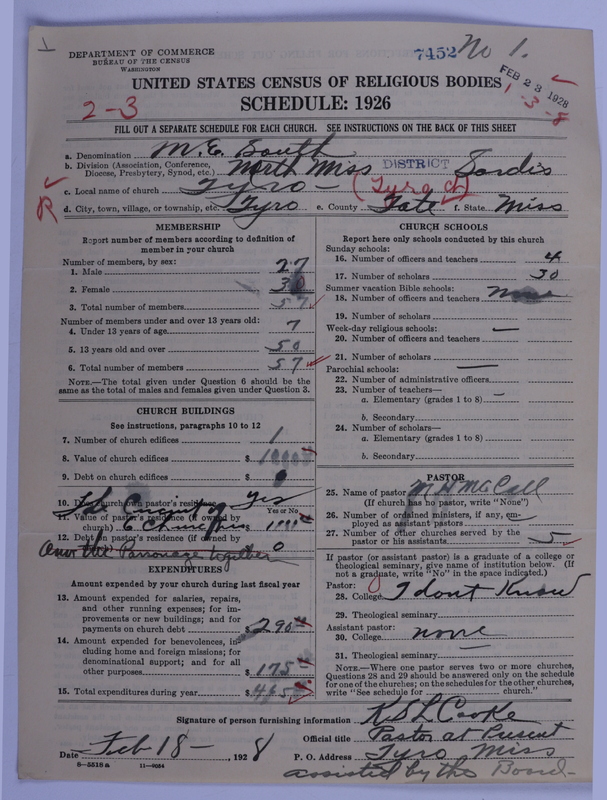 7452 No 1.
DEPARTMENT OF COMMERCE
BUREAU OF THE CENSUS
WASHINGTON
FEB 23 1928
UNITED STATES CENSUS OF RELIGIOUS BODIES
2-3
1-3-8
SCHEDULE: 1926
FILL OUT A SEPARATE SCHEDULE FOR EACH CHURCH. SEE INSTRUCTIONS ON THE BACK OF THIS SHEET
a. Denomination M. E. South
b. Division (Association, Conference, Diocese, Presbytery, Synod, etc.) North Miss DISTRICT Sardis
c. Local name of church Tyro - (Tyro ch)
R
d. City, town, village, or township, etc. Tyro e. County Tate f. State Miss
MEMBERSHIP
Report number of members according to definition of
member in your church
Number of members, by sex:
1. Male 27
2. Female 30
3. Total number of members 57
Number of members under and over 13 years old:
4. Under 13 years of age 7
5. 13 years old and over 50
6. Total number of members 57
NOTE.—The total given under Question 6 should be the
same as the total of males and females given under Question 3.
CHURCH BUILDINGS
See instructions, paragraphs 10 to 12
7. Number of church edifices 1
8. Value of church edifices $
9. Debt on church edifices $ 0
10. Does church own pastor's residence Yes
Yes or No
11. Value of pastor's residence (if owned by
church) $
12. Debt on pastor's residence (if owned by 0
own the Parsonage together
EXPENDITURES
Amount expended by your church during last fiscal year
13. Amount expended for salaries, repairs,
and other running expenses; for im-
provements or new buildings; and for
payments on church debt $ 290
14. Amount expended for benevolences, in-
cluding home and foreign missions; for
denominational support; and for all
other purposes $ 175
15. Total expenditures during year $ 465
CHURCH SCHOOLS
Report here only schools conducted by this church
Sunday schools:
16. Number of officers and teachers 4
17. Number of scholars 30
Summer vacation Bible schools:
18. Number of officers and teachers none
19. Number of scholars
Week-day religious schools: —
20. Number of officers and teachers
21. Number of scholars
Parochial schools: —
22. Number of administrative officers
23. Number of teachers—
a. Elementary (grades 1 to 8) —
b. Secondary
24. Number of scholars—
a. Elementary (grades 1 to 8)
b. Secondary
PASTOR
25. Name of pastor M H McCall
(If church has no pastor, write "None")
26. Number of ordained ministers, if any, em-
ployed as assistant pastors —
27. Number of other churches served by the
pastor or his assistants 5
If pastor (or assistant pastor) is a graduate of a college or
theological seminary, give name of institution below. (If
not a graduate, write "No" in the space indicated.)
Pastor:
28. College I dont Know
29. Theological seminary
Assistant pastor:
30. College none
31. Theological seminary —
NOTE.—Where one pastor serves two or more churches,
Questions 28 and 29 should be answered only on the schedule
for one of the churches; on the schedules for the other churches,
write "See schedule for church."
Signature of person furnishing information K S L Cooke
Official title Pastor at Present
Date Feb 18 -, 1928 P. O. Address Tyro Miss
8—5518 a 11—9054
assisted by the Board-